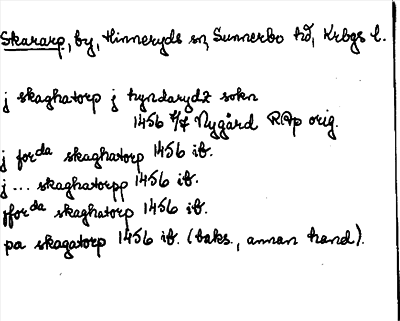 Skararp, by, Hinneryds sn, Sunnerbo hd, Krbgs l.
j skaghatorp j hyndarydz sokn
1456 8/4 Nygård RAp orig.
j forda skaghatorp 1456 ib.
j ... skaghatorpp 1456 ib.
jforda skaghatorp 1456 ib.
pa skagatorp 1456 ib. (baks., annan hand).